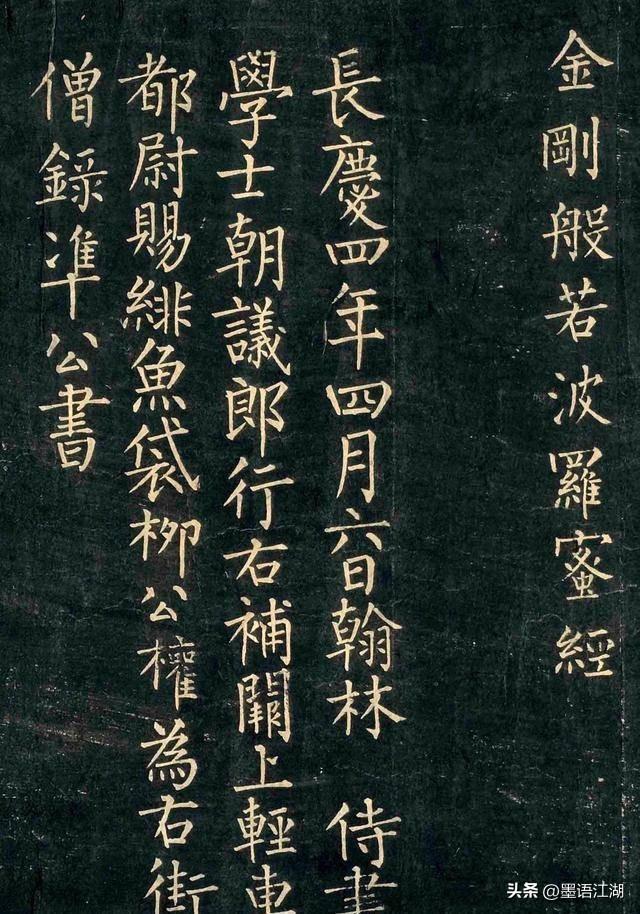 金剛般若波羅蜜經
長慶四年四月六日翰林 侍書
學士朝議郎行右補闕上輕車
都尉賜緋魚袋柳公權為右街
僧錄准公書
头条 @墨语江湖